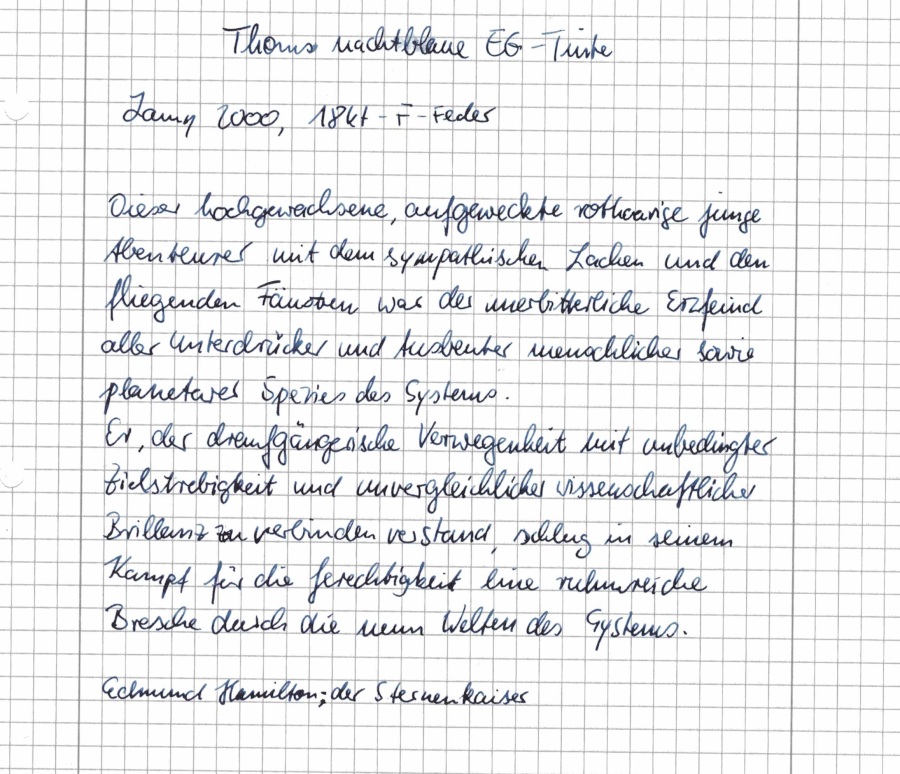 Thoms nachtblaue EG-Tinte
Lamy 2000, 18kt-F-Feder
Dieser hochgewachsene, aufgeweckte rothaarige junge
Abenteurer mit dem sympathischen Lachen und den
fliegenden Fäusten war der unerbitterliche Erzfeind
aller Unterdrücker und Ausbeuter menschlicher sowie
planetarer Spezies des Systems.
Er, der draufgängerische Verwegenheit mit unbedingter
Zielstrebigkeit und unvergleichlicher wissenschaftlicher
Brillanz zu verbinden verstand, schlug in seinem
Kampf für die Gerechtigkeit eine ruhmreiche
Bresche durch die neun Welten des Systems.
Edmund Hamilton; der Sternenkaiser